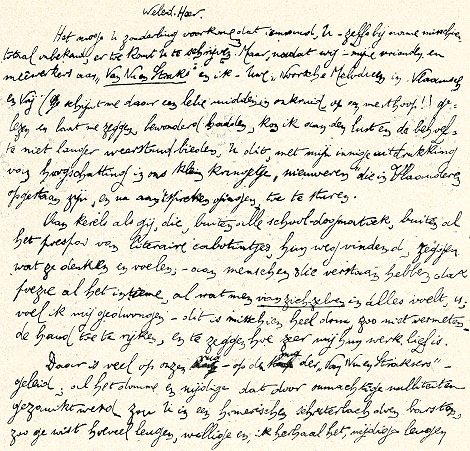 Weled. Heer.
Het moge U zonderling voorkomen dat iemand, U - zelfs bij name misschien
totaal onbekend, er toe komt U te schrijven. Maar, nadat wij - mijn vrienden en
meewerkers aan Van Nu en Straks en ik - Uwe Norsche Melodieën in Vlaanderen
en Vrij! (Gij schijnt me daar een lelie midden in onkruid op een mesthoop!! ge-
lezen en laat me zeggen, bewonderd hadden, kon ik aan den lust en de behoef-
te niet langer weerstand bieden, U dit, met mijn innige uitdrukking
van hoogschatting in ons klein kringetje "nieuweren" die in Vlaanderen
opgestaan zijn, en na aan 't spreken gingen, toe te sturen.
Aan kerels als gij, die, buiten alle school-dogmatiek, buiten al
het geknoei van literaire cabotentjes hun weg vindend, zeggen
wat ze denken en voelen, - aan menschen die verstaan hebben dat
poëzie al het intieme, al wat men van zichzelven in alles voelt, is,
voel ik mij gedwongen - dit is misschien heel dom, zoo niet vermeten -
de hand toe te rijken, en te zeggen hoe zeer mij hun werk lief is.
Daar is veel op onzen rug - op den rug der "Van Nu en Straksers" -
geleid; al het domme en nijdige dat door onmachtige nulliteiten
gezwetst werd zou U in een homerischen schaterlach doen barsten,
zoo ge wist hoeveel leugen, wallige en, ik herhaal het, nijdige leugen